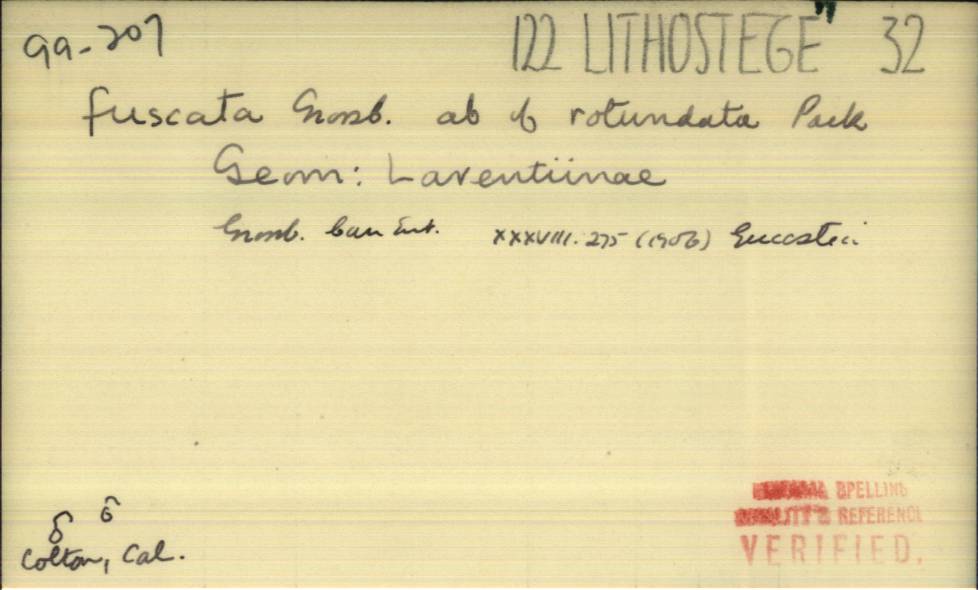 99-207
122 LITHOSTEGE" 32
fuscata Grossb. ab of rotundata Pack
Geom: Larentiinae
Grossb. Can Ent. XXXVIII. 275 (1906)
Colton, Cal.
SPELLING
REFERENCE
VERIFIED.